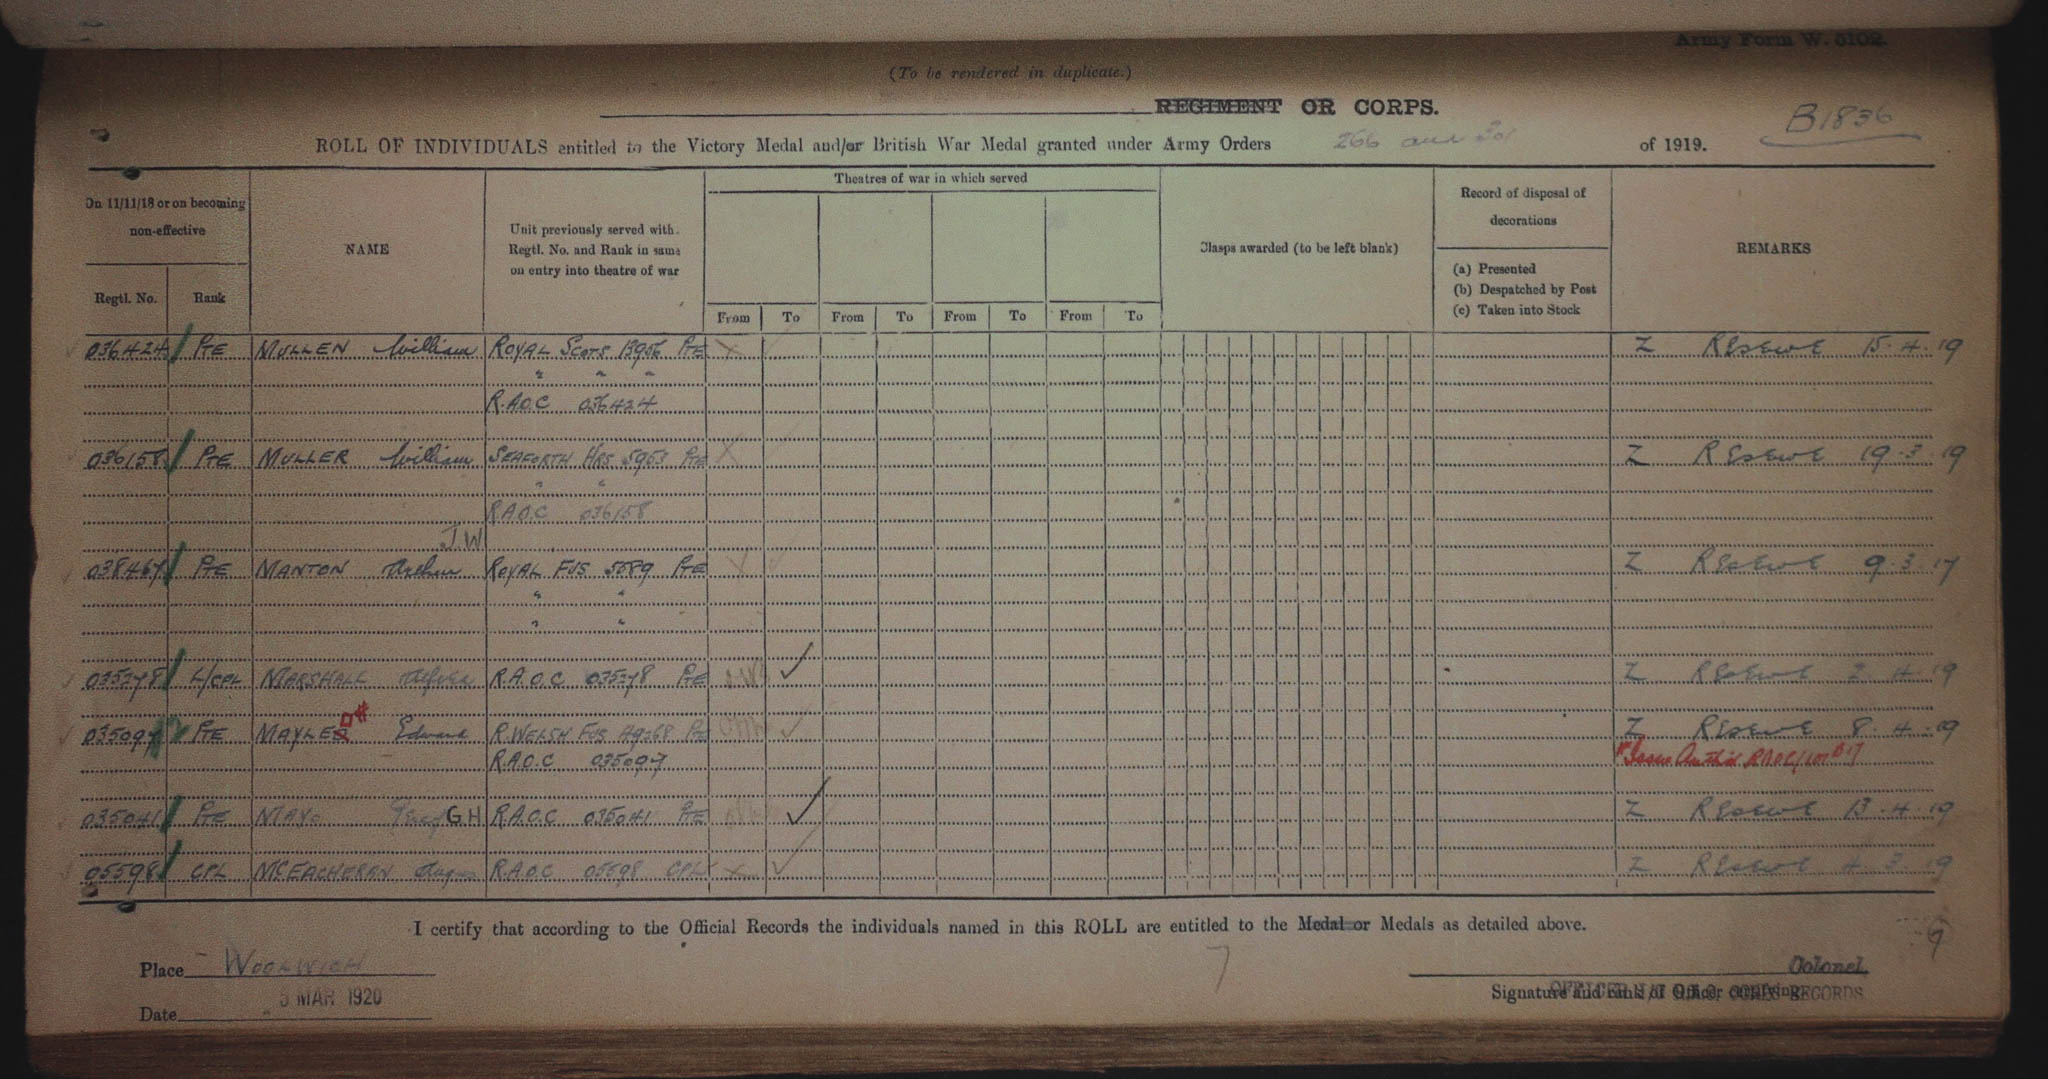 Army Form W. 5102.
(To be rendered in duplicate.)
REGIMENT OR CORPS.
B1836
ROLL OF INDIVIDUALS entitled to the Victory Medal and/or British War Medal granted under Army Orders 266 and 301 of 1919.
On 11/11/18 or on becoming non-effective
Regtl. No.
Rank
NAME
Unit previously served with. Regtl. No. and Rank in same on entry into theatre of war
Theatres of war in which served
From To From To From To From To
Clasps awarded (to be left blank)
Record of disposal of decorations
(a) Presented
(b) Despatched by Post
(c) Taken into Stock
REMARKS
036424 PTE MULLEN William ROYAL SCOTS 13956 PTE X Z RESERVE 15.4.19
" " "
R.A.O.C 036424
036158 PTE MULLER William SEAFORTH HRS 5953 PTE X Z RESERVE 19.3.19
" "
R.A.O.C 036158
J.W
038467 PTE MANTON Arthur ROYAL FUS 5589 PTE X Z RESERVE 9.3.17
" "
" "
035278 L/CPL MARSHALL R.A.O.C 035278 PTE Z RESERVE 2.4.19
035097 PTE MAYLE Edward R. WELSH FUS PTE Z RESERVE 8.4.19
R.A.O.C 035097
035041 PTE MAYO G H R.A.O.C 035041 PTE Z RESERVE 13.4.19
05598 CPL MCEACHERN Angus R.A.O.C 05598 CPL X Z RESERVE 4.3.19
I certify that according to the Official Records the individuals named in this ROLL are entitled to the Medal or Medals as detailed above.
7
Place WOOLWICH
Colonel.
Date MAR 1920
Signature and rank of Officer certifying